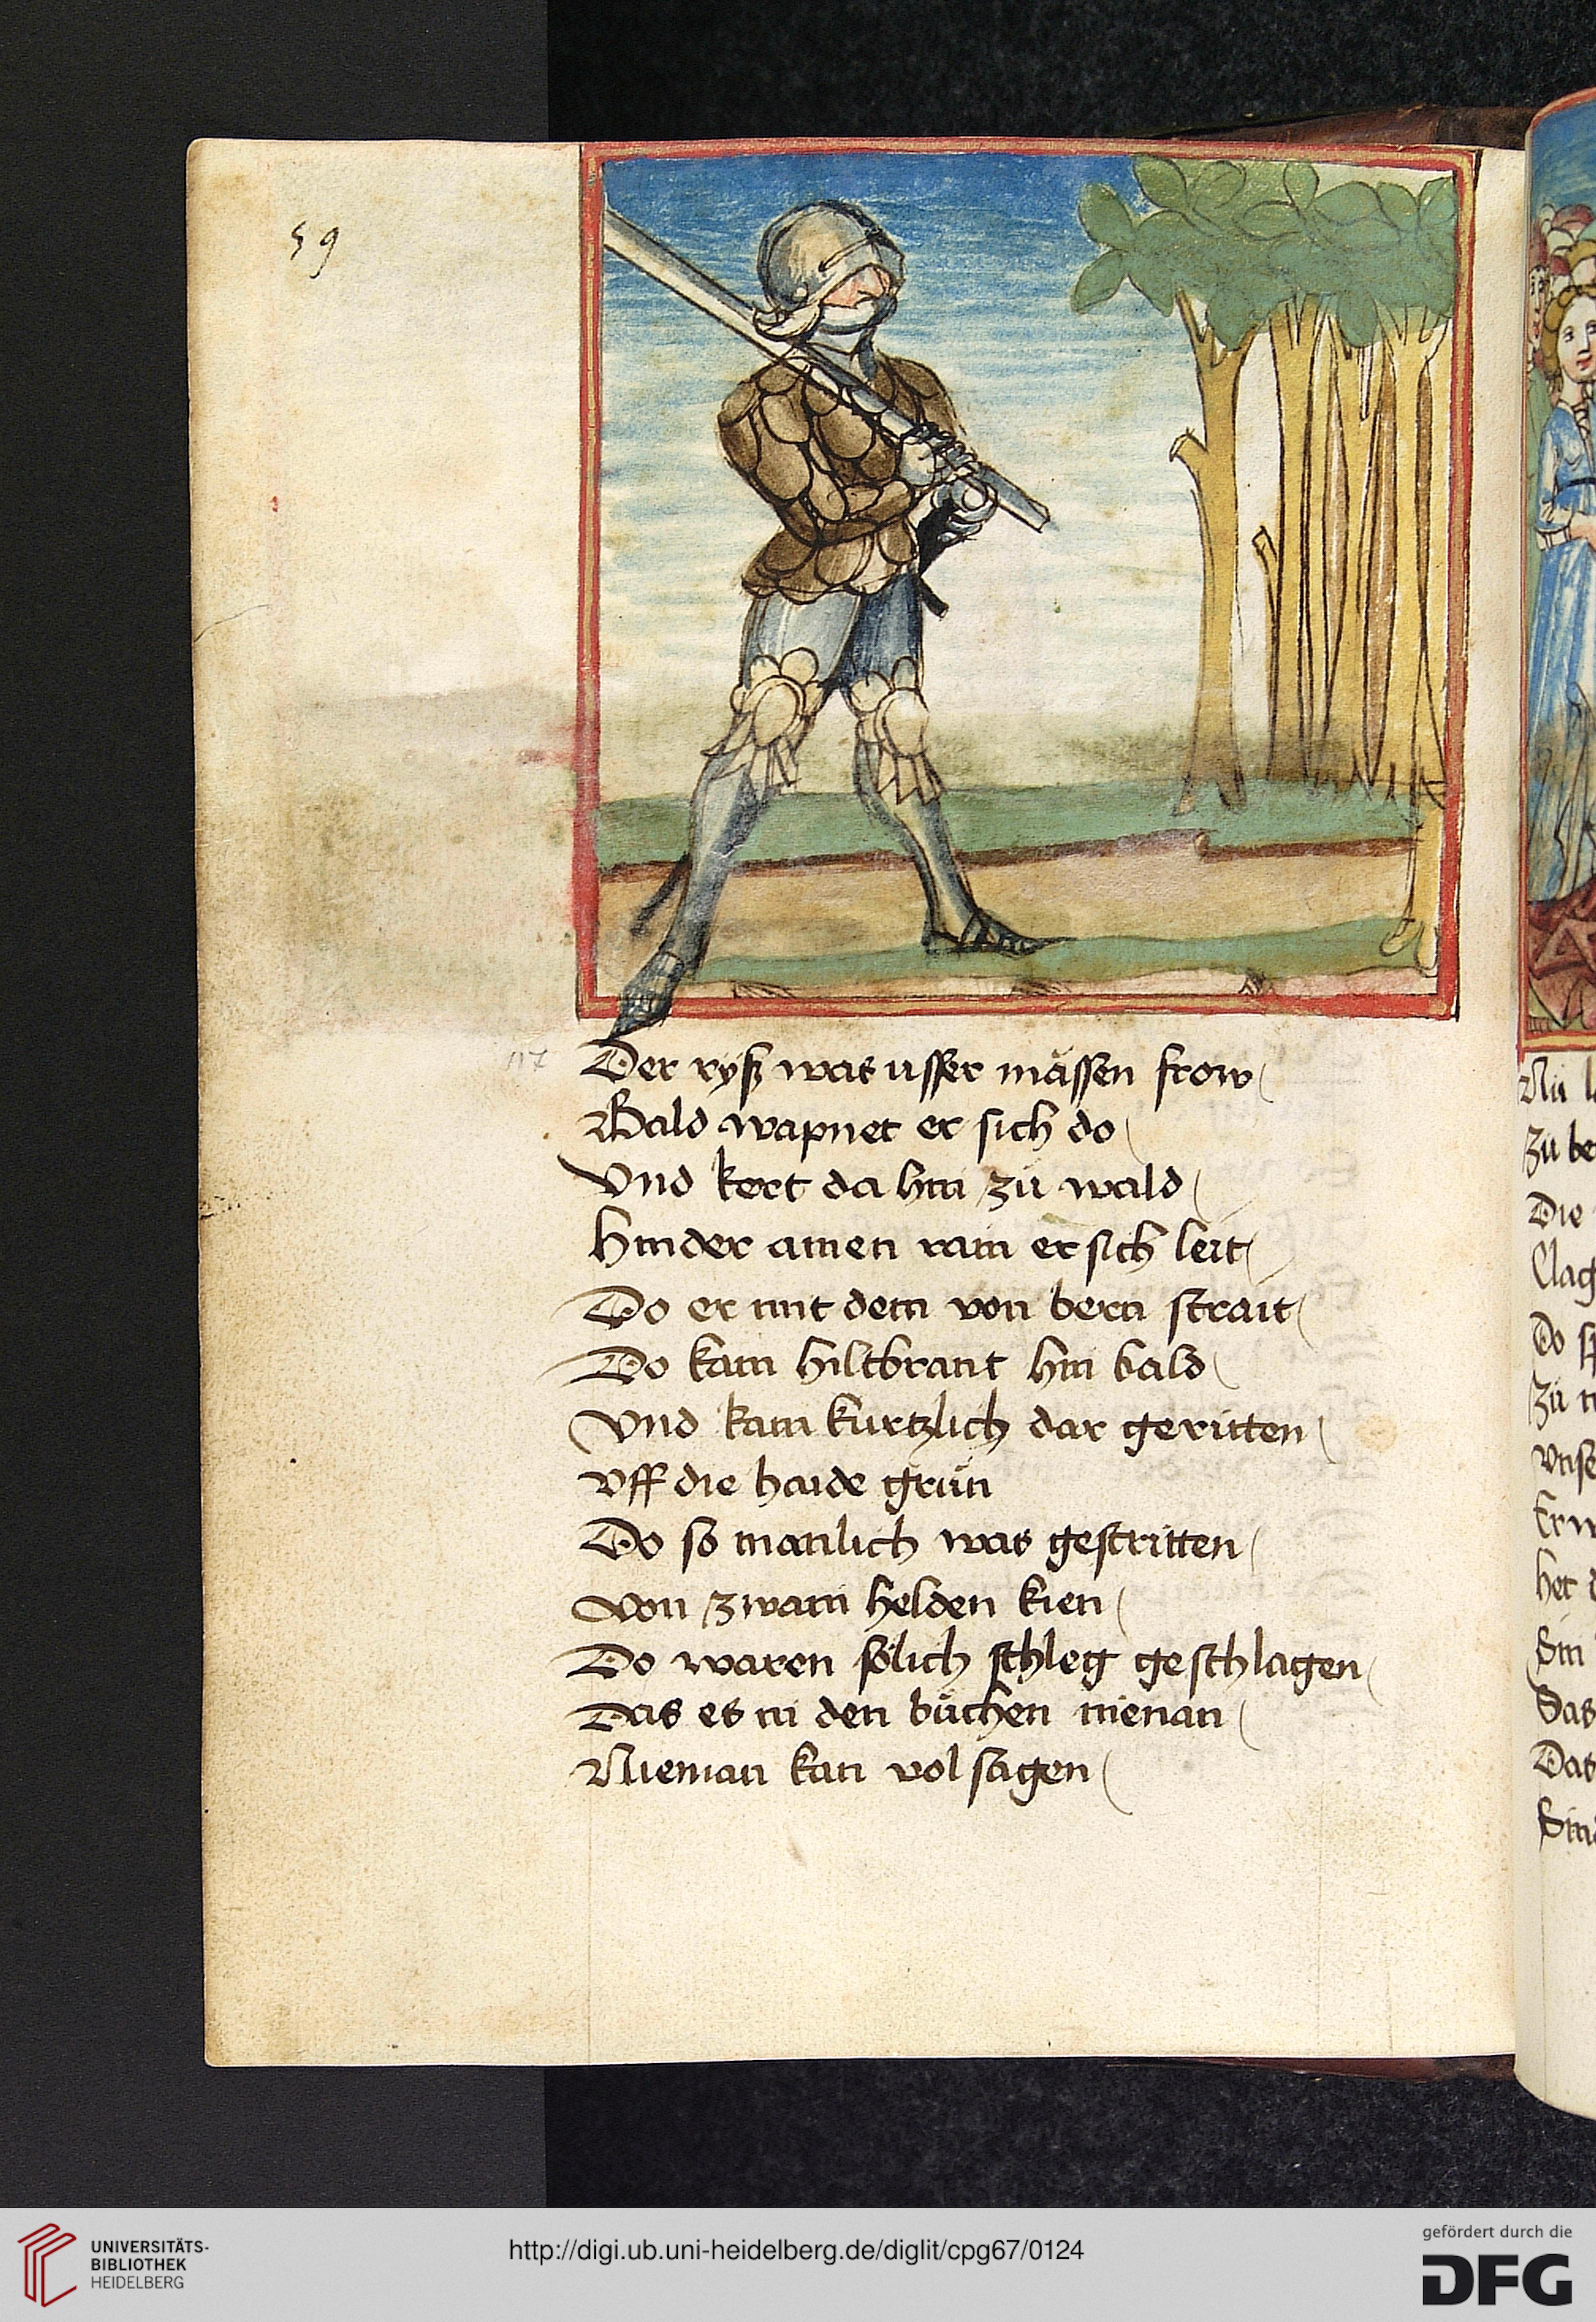 59
117
Der ryß was usser mässen frow
Bald wapnet er sich do
Vnd kert da hin zü wald
Hinder ainen rain er sich leit
Do er mit dem von bern strait
Do kam hiltbrant hin bald
Vnd kam kurtzlich dar geritten
Vff die haide grün
Do so manlich was gestritten
Von zwain helden kien
Do waren sölich schleg geschlagen
Das es in den büchen nienan
Nieman kan vol sagen
Nü
Zü be
Die
Clag
Do sp
Zü
Vnse
Er
Het
Sin
Das
Das
UNIVERSITÄTS-
BIBLIOTHEK
HEIDELBERG
http://digi.ub.uni-heidelberg.de/diglit/cpg67/0124
gefördert durch die
DFG